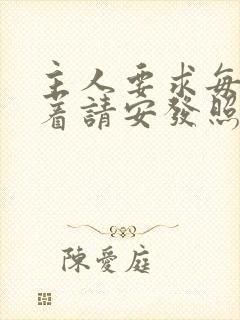 主人要求每
着請安發照
陳愛庭